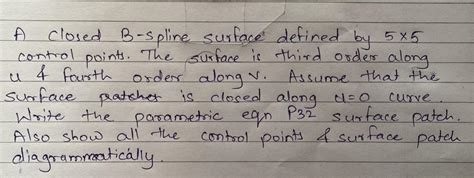 A closed B-spline surface defined by 5x5
control points. The surface is third order along
u & fourth order along v. Assume that the
surface patches is closed along u=0 curve.
Write the parametric eqn P32 surface patch.
Also show all the control points & surface patch
diagrammatically.